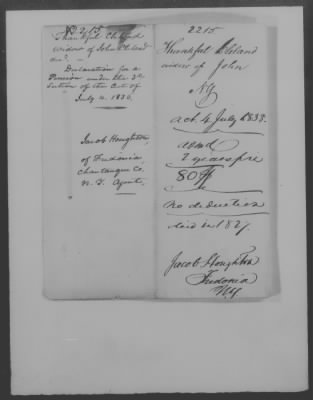 No 2215
Thankful Cleland
widow of John Cleland
decd. –
Declaration for a
Pension under the 3d
Section of the Act of
July 4. 1836.
Jacob Houghton
of Fredonia,
Chautauque Co.
N. Y. Agent,
2215
Thankful Cleland
widow of John
NY
act 4 July 1838.
2 years pvt
80ff
no deduction
died in 1827.
Jacob Houghton
Fredonia
NY